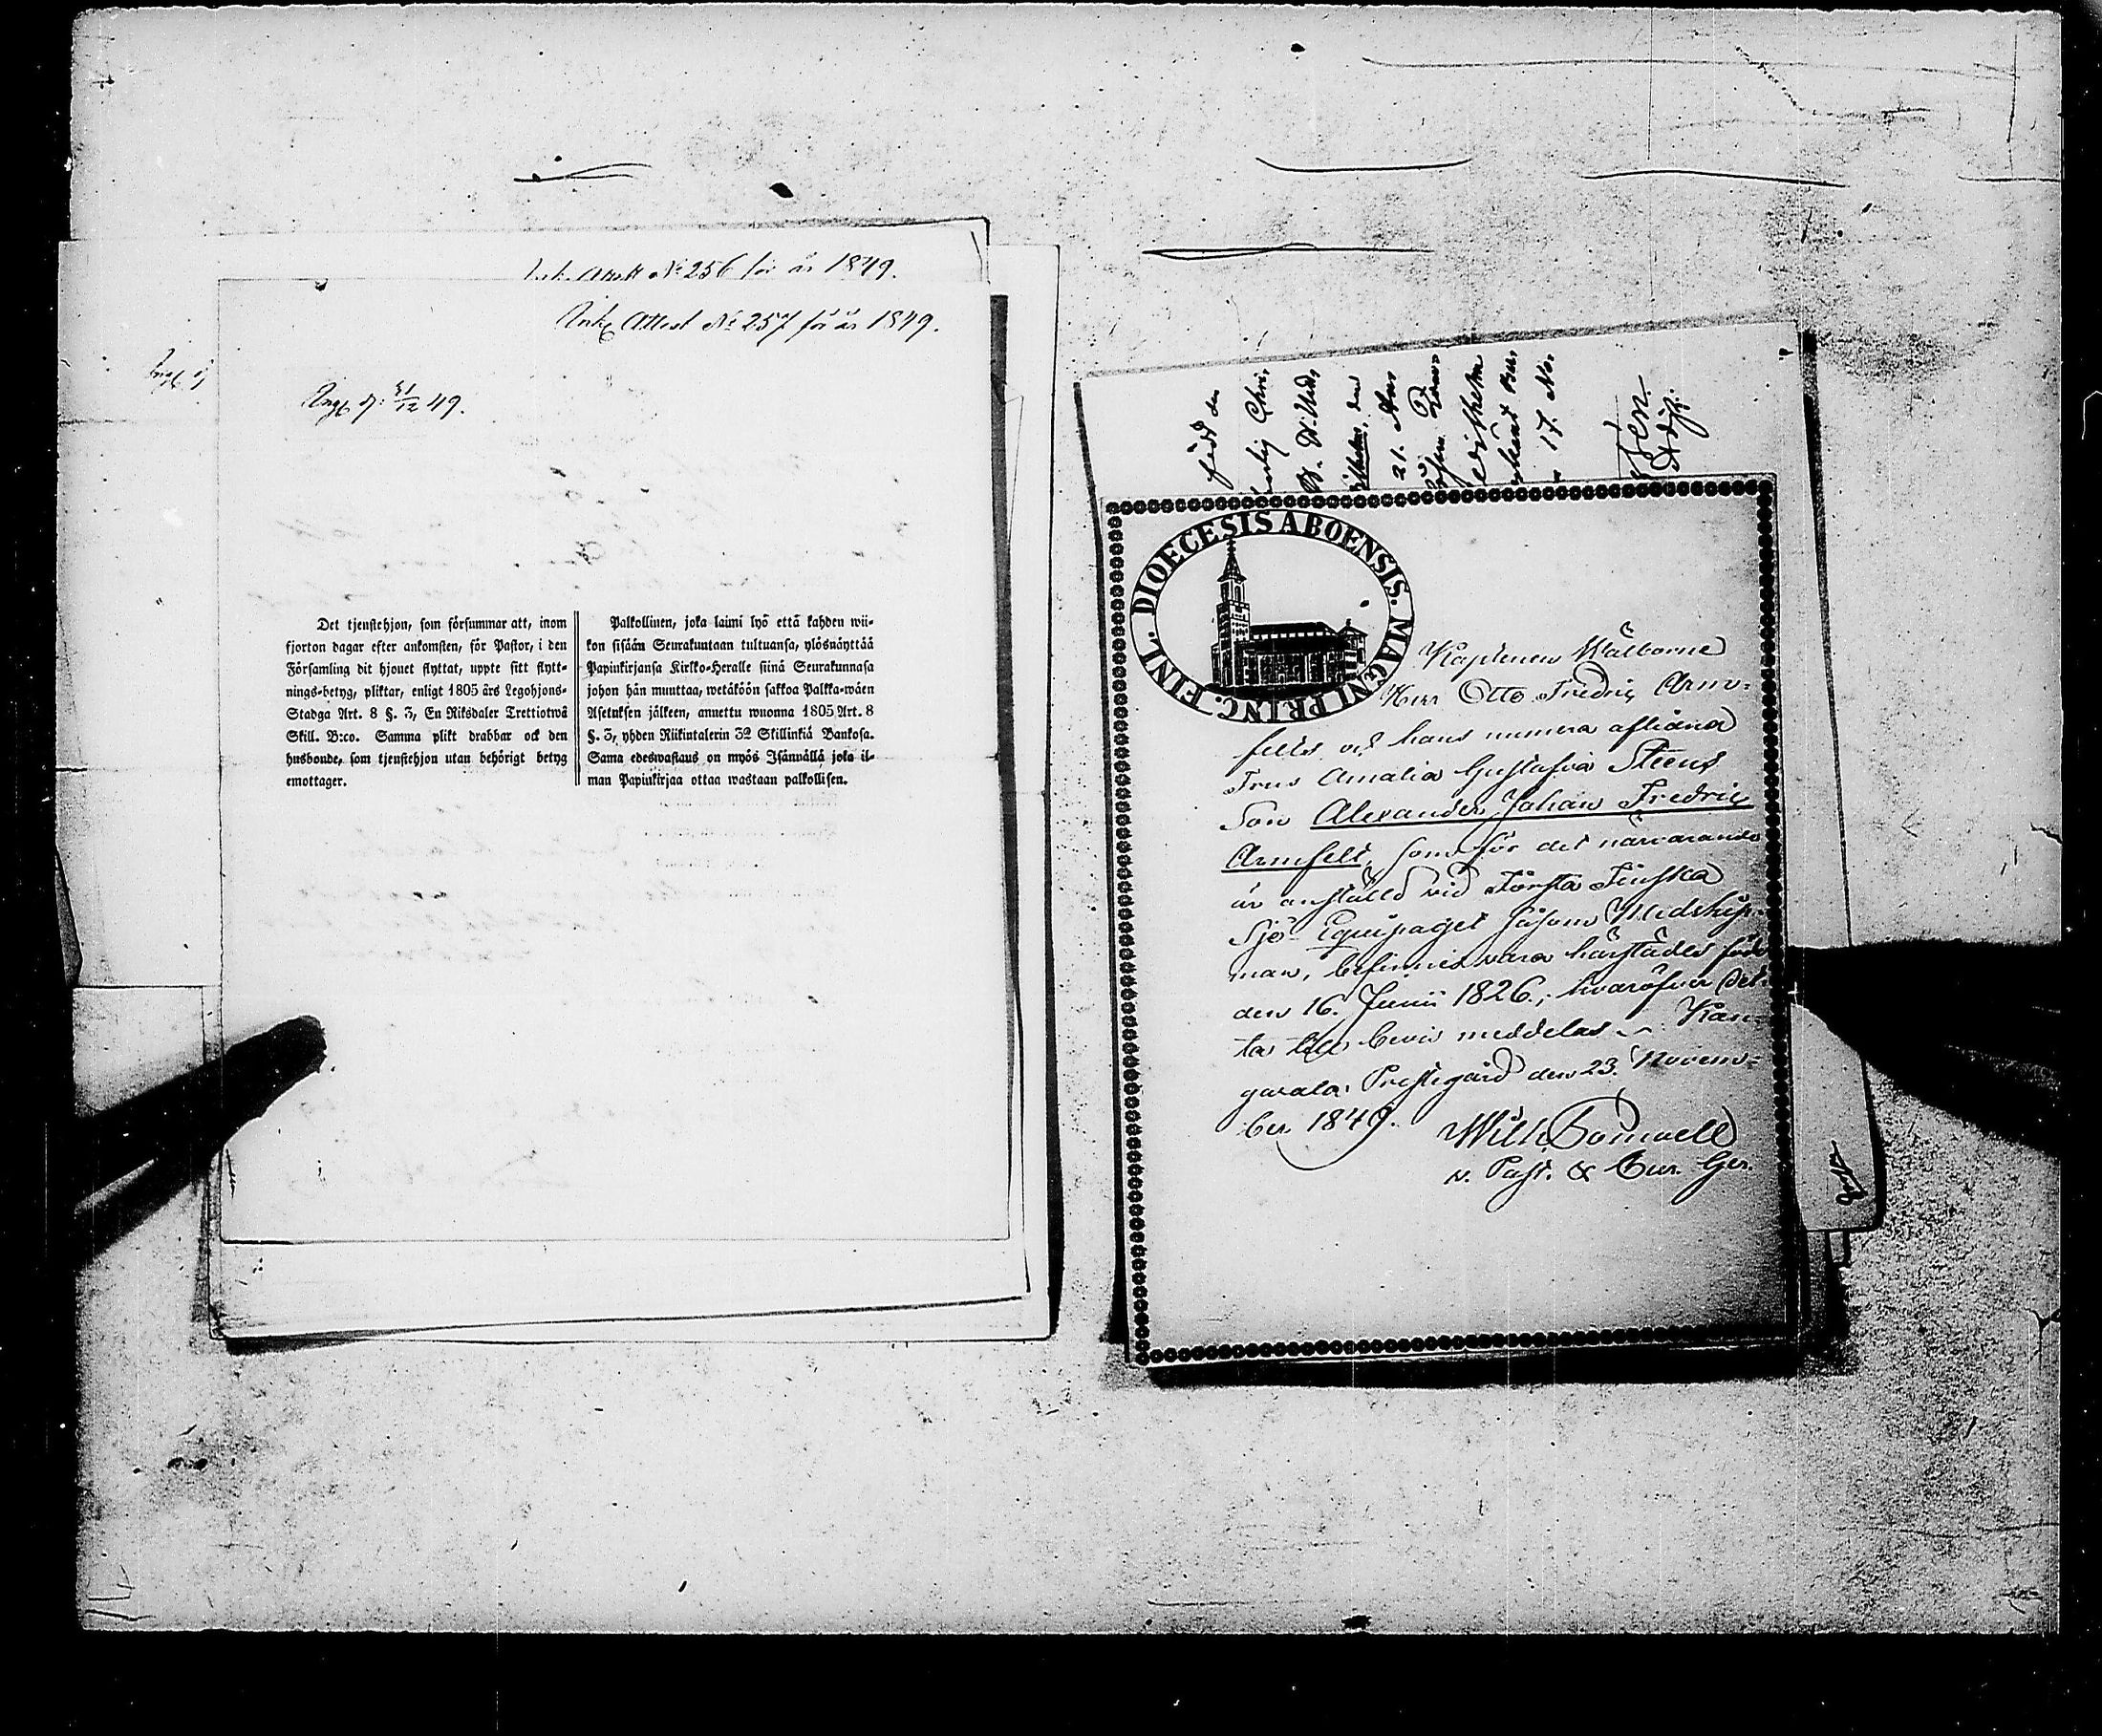 Attest No 256 för år 1849.
Ink. Attest No 257 för år 1849.
Ing. d: 31/12 49.
Det tjenstehjon, som försummar att, inom
fjorton dagar efter ankomsten, för Pastor, i den
Församling dit hjonet flyttat, uppte sitt flytt-
nings-betyg, pliktar, enligt 1805 års Legohjons-
Stadga Art. 8 §. 3, En Riksdaler Trettiotwå
Skill. B:co. Samma plikt drabbar ock den
husbonde, som tjenstehjon utan behörigt betyg
emottager.
Palkollinen, joka laimi lyö että kahden wii-
kon sisään Seurakuntaan tultuansa, ylösnäyttää
Papinkirjansa Kirkko-Herralle siinä Seurakunnasa
johon hän muuttaa, wetäköön sakkoa Palkka-wäen
Asetuksen jälkeen, annettu wuonna 1805 Art. 8
§. 3, yhden Riikintalerin 32 Skillinkiä Bankosa.
Sama edeswastaus on myös Isännällä joka il-
man Papinkirjaa ottaa wastaan palkollisen.
född den
21.
17. No.
DIOECESIS ABOENSIS. MAGNI PRINC. FINL.
Kaptenen Wälborne
Herr Otto Fredric Arm-
felts och hans numera aflidna
Frus Amalia Gustafva Steens
Son Alexander Johan Fredric
Armfelt, som för det närvarande
är anställd vid Första Finska
Sjö-Equipaget såsom Midship-
man, befinnes vara härstädes född
den 16. Junii 1826.; hvaröfver det-
ta till bevis meddelas. Kan-
gasala Prestgård den 23. Novem-
ber 1849.
Wilh.
v. Past. & Cur. Ger.